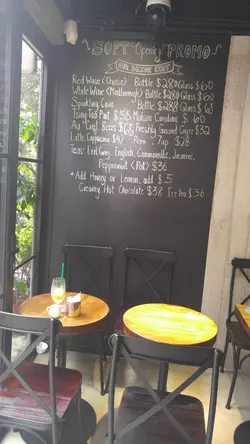 SOFT Opening PROMO
Red Wine (Classic) Bottle $280 Glass $60
White Wine (Malborough) Bottle $280 Glass $60
Sparkling Cava Bottle $288 Glass $65
Tsing Tao Pint $55 Makoni Comploma $60
$65 Freshly Ground Ginger $32
Latte, Cappuccino $42 7up $28
Teas: Earl Grey, English, Cammomille, Jasmine,
Peppermint (Pot) $36
+ Add Honey or Lemon, add $5
Creamy Hot Chocolate $38 Ice tea $36